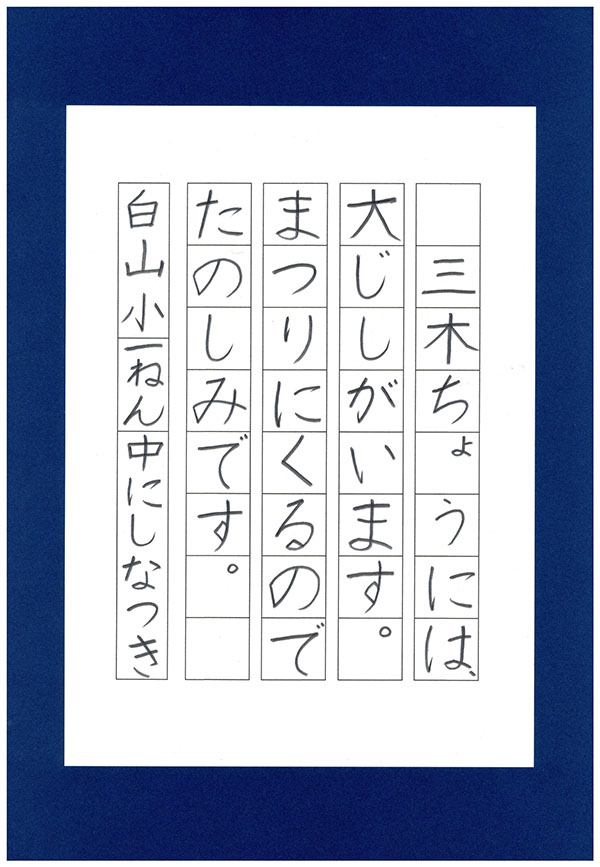 三木ちょうには、
大じしがいます。
まつりにくるので
たのしみです。
白山小一ねん中にしなつき